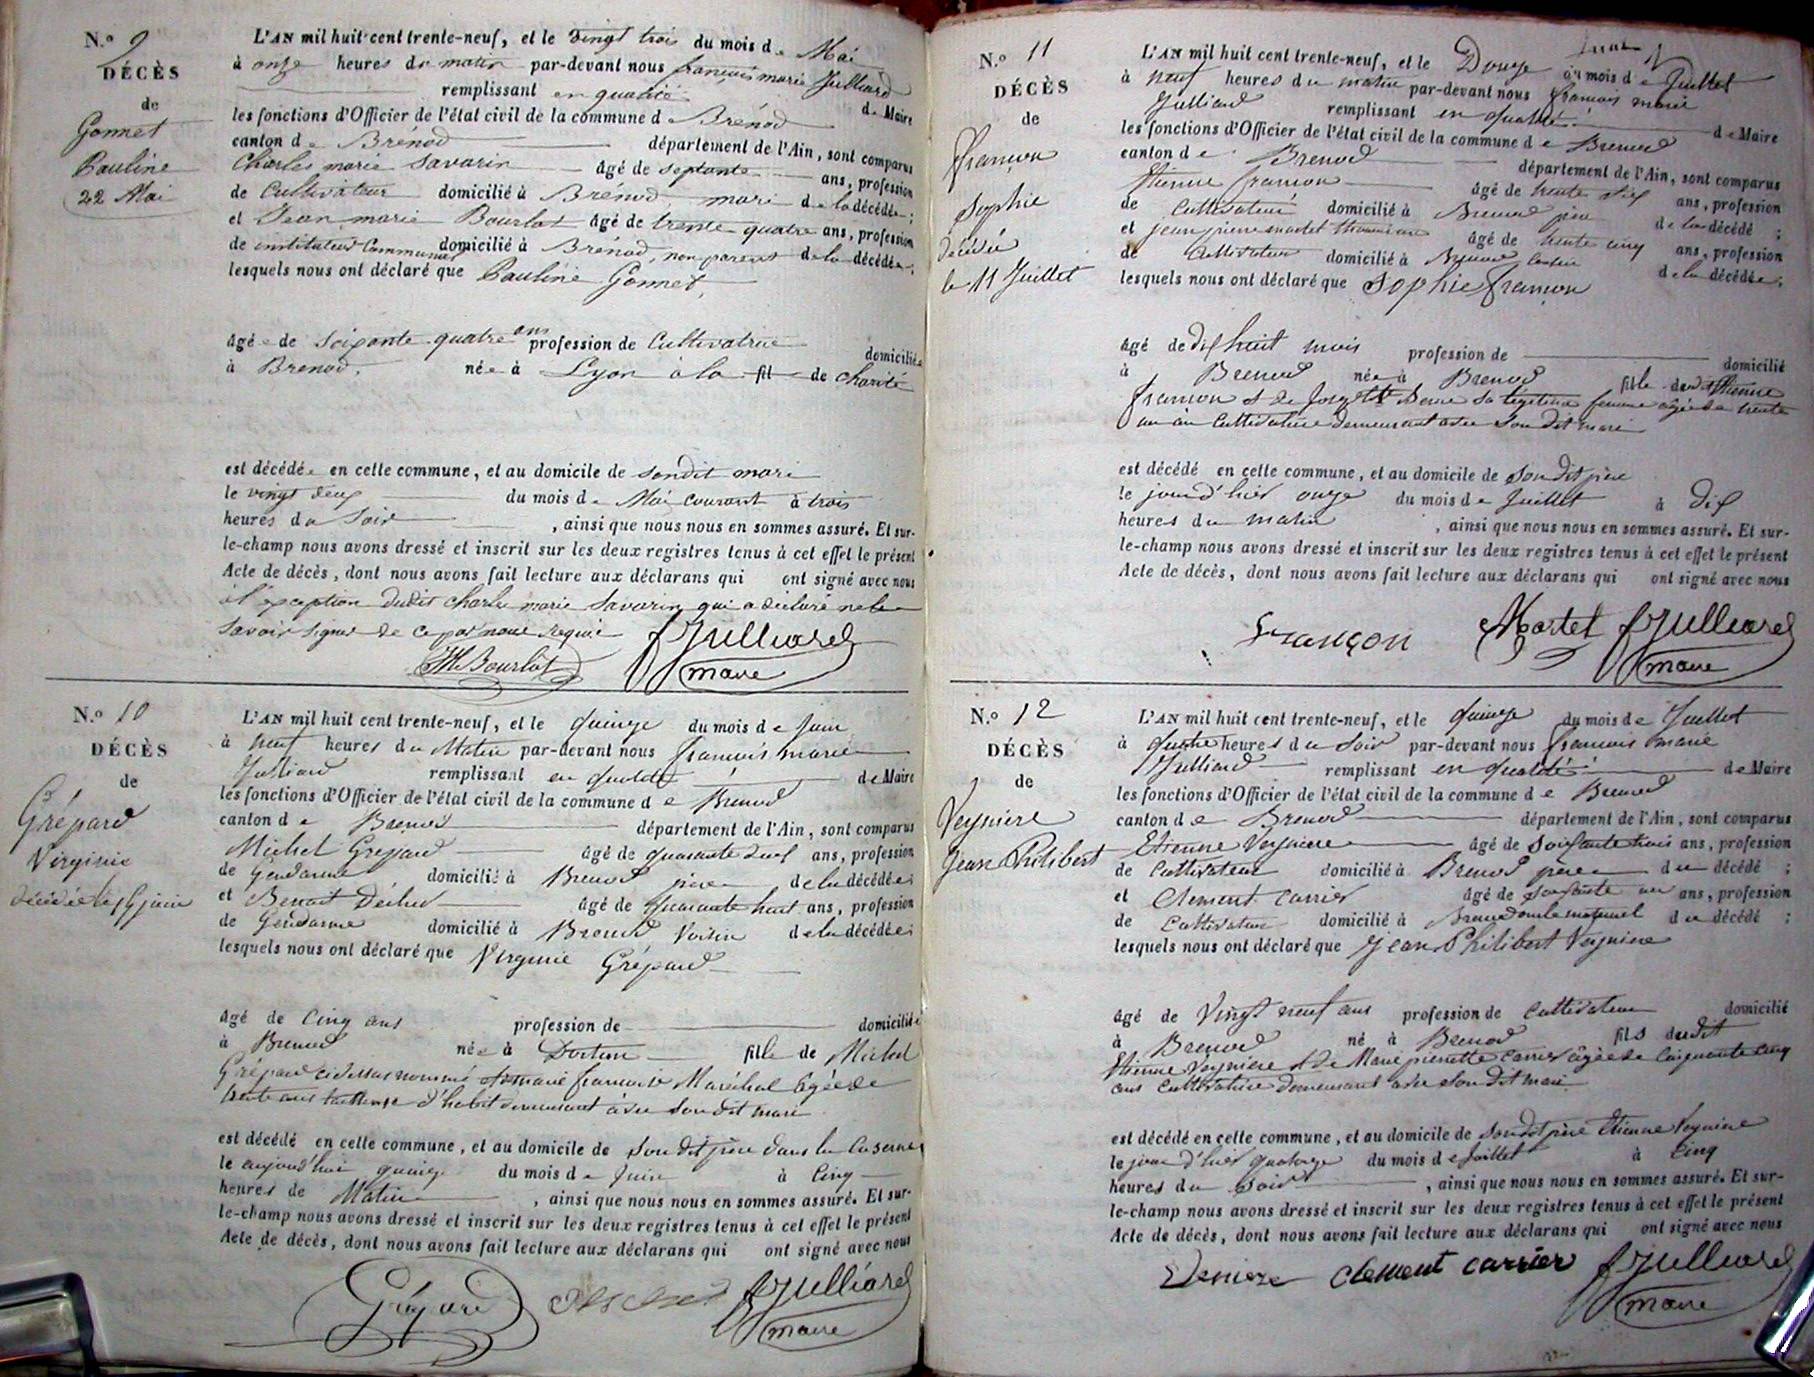 N.º 9
DÉCÈS
de
Gonnet
Pauline
22 Mai
L'AN mil huit cent trente-neuf, et le vingt trois du mois de Mai
à onze heures du matin par-devant nous françois marie Julliard
remplissant en qualité de Maire
les fonctions d'Officier de l'état civil de la commune d Brénod
canton de Brénod département de l'Ain, sont comparus
Charles marie Savarin âgé de septante ans, profession
de Cultivateur domicilié à Brénod, mari de la décédée;
et Jean marie Bourlot âgé de trente quatre ans, profession
de instituteur Communal domicilié à Brénod, non parent de la décédée,
lesquels nous ont déclaré que Pauline Gonnet,
âgée de soixante quatre ans profession de Cultivatrice domiciliée
à Brénod, née à Lyon à la fil de charité
est décédée en cette commune, et au domicile de son dit mari
le vingt deux du mois de Mai courant à trois
heures du Soir, ainsi que nous nous en sommes assuré. Et sur-
le-champ nous avons dressé et inscrit sur les deux registres tenus à cet effet le présent
Acte de décès, dont nous avons fait lecture aux déclarans qui ont signé avec nous
à l'exception dudit charles marie Savarin qui a déclaré ne le
savoir signer de ce par nous requis
JM Bourlot fJulliard
maire
N.º 10
DÉCÈS
de
Grépard
Virginie
décédée le 15 juin
L'AN mil huit cent trente-neuf, et le quinze du mois de Juin
à neuf heures du Matin par-devant nous françois marie
Julliard remplissant en qualité de Maire
les fonctions d'Officier de l'état civil de la commune de Brenod
canton de Brenod département de l'Ain, sont comparus
Michel Grépard âgé de quarante deux ans, profession
de Gendarme domicilié à Brenod père de la décédée;
et Benoit âgé de quarante huit ans, profession
de Gendarme domicilié à Brenod Voisin de la décédée;
lesquels nous ont déclaré que Virginie Grépard
âgé de Cinq ans profession de domiciliée
à Brenod née à Dortan fille de Michel
Grépard ci dessus nommé et de marie françoise Maréchal âgée de
trente ans tailleuse d'habit demeurant avec son dit mari
est décédé en cette commune, et au domicile de son dit père dans la Caserne
le aujourd'hui quinze du mois de Juin à Cinq
heures de Matin, ainsi que nous nous en sommes assuré. Et sur-
le-champ nous avons dressé et inscrit sur les deux registres tenus à cet effet le présent
Acte de décès, dont nous avons fait lecture aux déclarans qui ont signé avec nous
Grépard fJulliard
maire
N.º 11
DÉCÈS
de
françon
Sophie
décédée
le 11 Juillet
L'AN mil huit cent trente-neuf, et le Douze du mois de Juillet
à neuf heures du matin par-devant nous francois marie
Julliard remplissant en qualité de Maire
les fonctions d'Officier de l'état civil de la commune de Brenod
canton de Brenod département de l'Ain, sont comparus
Etienne françon âgé de trente six ans, profession
de Cultivateur domicilié à Brenod père de la décédé;
et jean pierre martet âgé de trente cinq ans, profession
de Cultivateur domicilié à Brenod de la décédée,
lesquels nous ont déclaré que Sophie françon
âgé de dix huit mois profession de domicilié
à Brenod née à Brenod fille dudit Etienne
françon et de sa légitime femme âgée de trente
un an Cultivatrice demeurant avec son dit mari
est décédé en cette commune, et au domicile de son dit père
le jour d'hier onze du mois de Juillet à dix
heures du matin, ainsi que nous nous en sommes assuré. Et sur-
le-champ nous avons dressé et inscrit sur les deux registres tenus à cet effet le présent
Acte de décès, dont nous avons fait lecture aux déclarans qui ont signé avec nous
françon Martet fJulliard
maire
N.º 12
DÉCÈS
de
Veyniere
Jean Philibert
L'AN mil huit cent trente-neuf, et le quinze du mois de Juillet
à quatre heures du Soir par-devant nous francois marie
Julliard remplissant en qualité de Maire
les fonctions d'Officier de l'état civil de la commune de Brenod
canton de Brenod département de l'Ain, sont comparus
Etienne Veyniere âgé de soixante trois ans, profession
de Cultivateur domicilié à Brenod père du décédé;
et Clement carrier âgé de soixante un ans, profession
de Cultivateur domicilié à Brenod oncle maternel du décédé;
lesquels nous ont déclaré que Jean Philibert Veyniere
âgé de Vingt neuf ans profession de Cultivateur domicilié
à Brenod né à Brenod fils dudit
Etienne Veyniere et de Marie pierrette Carrier âgée de Cinquante cinq
ans Cultivatrice demeurant avec son dit mari
est décédé en cette commune, et au domicile de son dit père Etienne Veyniere
le jour d'hier quatorze du mois de Juillet à Cinq
heures du Soir, ainsi que nous nous en sommes assuré. Et sur-
le-champ nous avons dressé et inscrit sur les deux registres tenus à cet effet le présent
Acte de décès, dont nous avons fait lecture aux déclarans qui ont signé avec nous
Veniere clement carrier fJulliard
maire